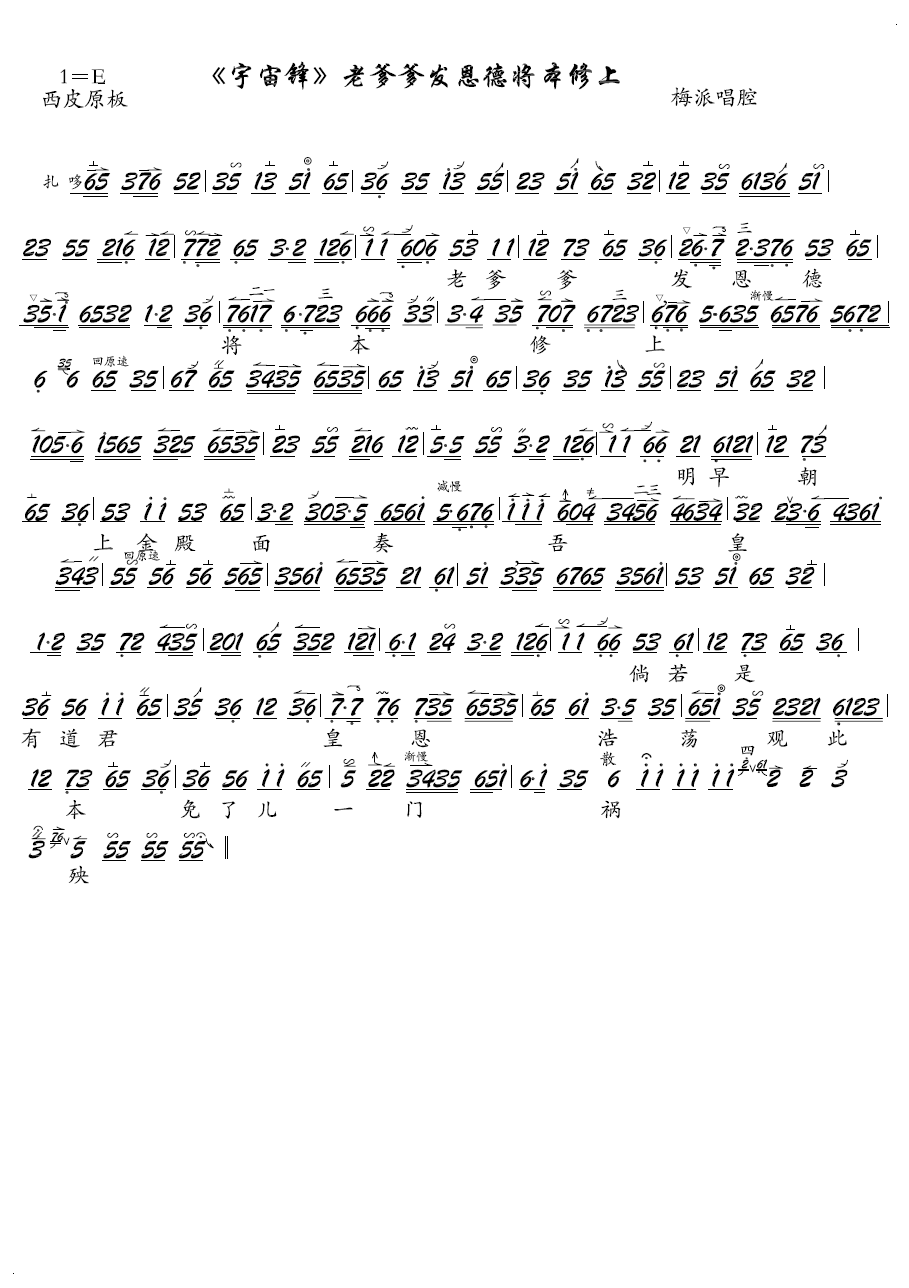 1=E 《宇宙锋》老爹爹发恩德将本修上
西皮原板 梅派唱腔
扎 哆 65 376 52 | 35 13 51 65 | 36 35 13 55 | 23 51 65 32 | 12 35 6136 51 |
23 55 216 12 | 772 65 3·2 126 | 11 606 53 11 | 12 73 65 36 | 26·7 2·376 53 65 |
老 爹 爹 发 恩 德
35·1 6532 1·2 36 | 7617 6·723 666 33 | 3·4 35 707 6723 | 676 5·635 6576 5672 |
渐慢
将 本 修 上
6 35 6 65 35 | 67 65 3435 6535 | 65 13 51 65 | 36 35 13 55 | 23 51 65 32 |
回原速
105·6 1565 325 6535 | 23 55 216 12 | 5·5 55 3·2 126 | 11 66 21 6121 | 12 73
明 早 朝
减慢
65 36 | 53 11 53 65 | 3·2 303·5 6561 5·676 | 111 604 3456 4634 | 32 23·6 4361
上 金 殿 面 奏 吾 皇
回原速
343 | 55 56 56 565 | 3561 6535 21 61 | 51 335 6765 3561 | 53 51 65 32 |
1·2 35 72 435 | 201 65 352 121 | 6·1 24 3·2 126 | 11 66 53 61 | 12 73 65 36 |
倘 若 是
36 56 11 65 | 35 36 12 36 | 7·7 76 735 6535 | 65 61 3·5 35 | 651 35 2321 6123 |
有 道 君 皇 恩 浩 荡 观 此
渐慢 散 四
12 73 65 36 | 36 56 11 65 | 5 22 3435 651 | 6·1 35 6 11 11 11 2 2 3
本 免 了 儿 一 门 祸
3 76 5 55 55 55 ‖
殃